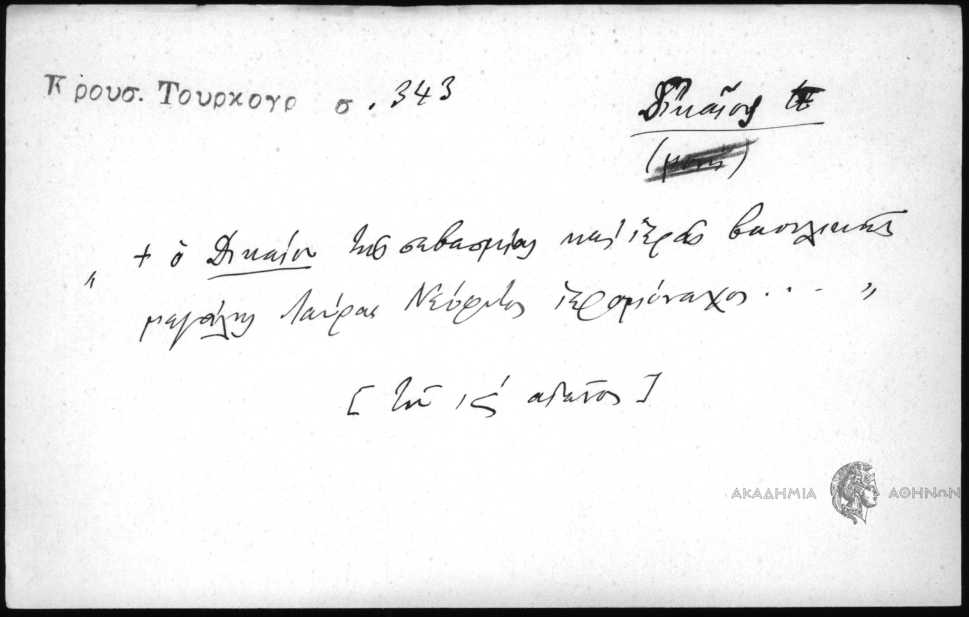 Κρουσ. Τουρκογρ σ. 343
Δικαῖος
„ + ὁ Δικαίου τῆς σεβασμίας καὶ ἱερᾶς βασιλικῆς
μεγάλης Λαύρας Νεόφυτος ἱερομόναχος . . . „
[τοῦ ις΄ αἰῶνος]
ΑΚΑΔΗΜΙΑ ΑΘΗΝΩΝ